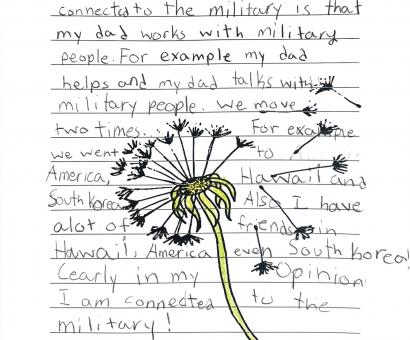 connected to the military is that
my dad works with military
people. For example my dad
helps and my dad talks with
military people. We move
two times... For example
we went to
America, Hawaii and
South korea Also I have
alot of friends in
Hawaii, America even South korea!
Cearly in my Opinion
I am connected to the
military!